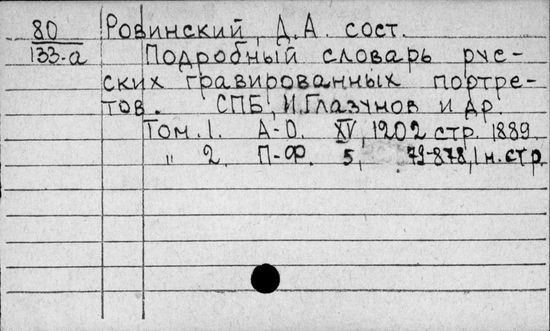 80 Ровинский, Д.А. сост.
133-а Подробный словарь рус-
ских гравированных портре-
тов. СПБ, И.Глазунов и др.
Том. 1. А-О. XV, 1202 стр. 1889.
" 2. П-Ф. 5, 79-878, 1 н. стр.